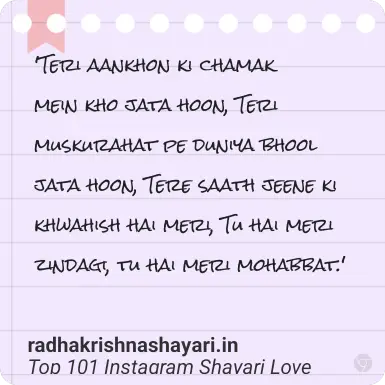 'Teri aankhon ki chamak
mein kho jata hoon, Teri
muskurahat pe duniya bhool
jata hoon, Tere saath jeene ki
khwahish hai meri, Tu hai meri
zindagi, tu hai meri mohabbat.'
radhakrishnashayari.in
Top 101 Instagram Shayari Love